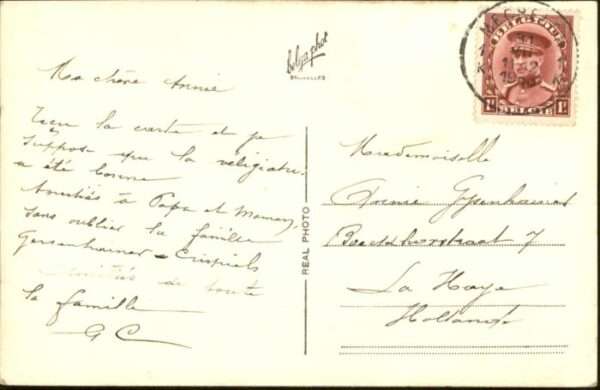 belge phot
BRUXELLES
Ma chère Annie
Reçu la carte et je
suppose que la
a été bonne
Amitiés à Papa et Maman,
sans oublier la famille
Gersenhainer - Crispiels
Amitiés de toute
la famille
G C
REAL PHOTO
Mademoiselle
Annie Gysenhainer
7
La Haye
Hollande
1F 1F
BELGIE